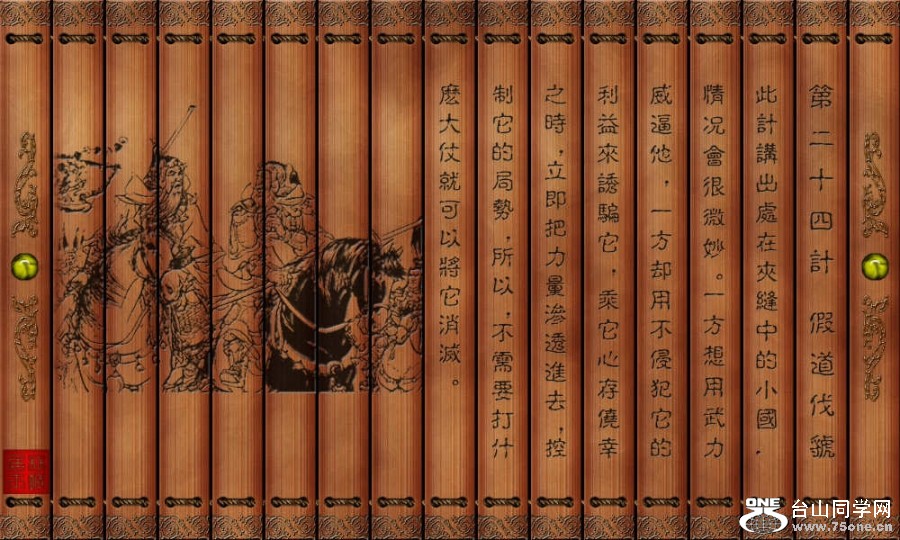 第二十四計 假道伐號
此計講出處在夾縫中的小國,
情况會很微妙。一方想用武力
威逼他,一方却用不侵犯它的
利益來誘騙它,乘它心存僥幸
之時,立即把力量滲透進去,控
制它的局勢,所以,不需要打什
麽大仗就可以將它消滅。
ONE
台山同学网
www.75one.cn